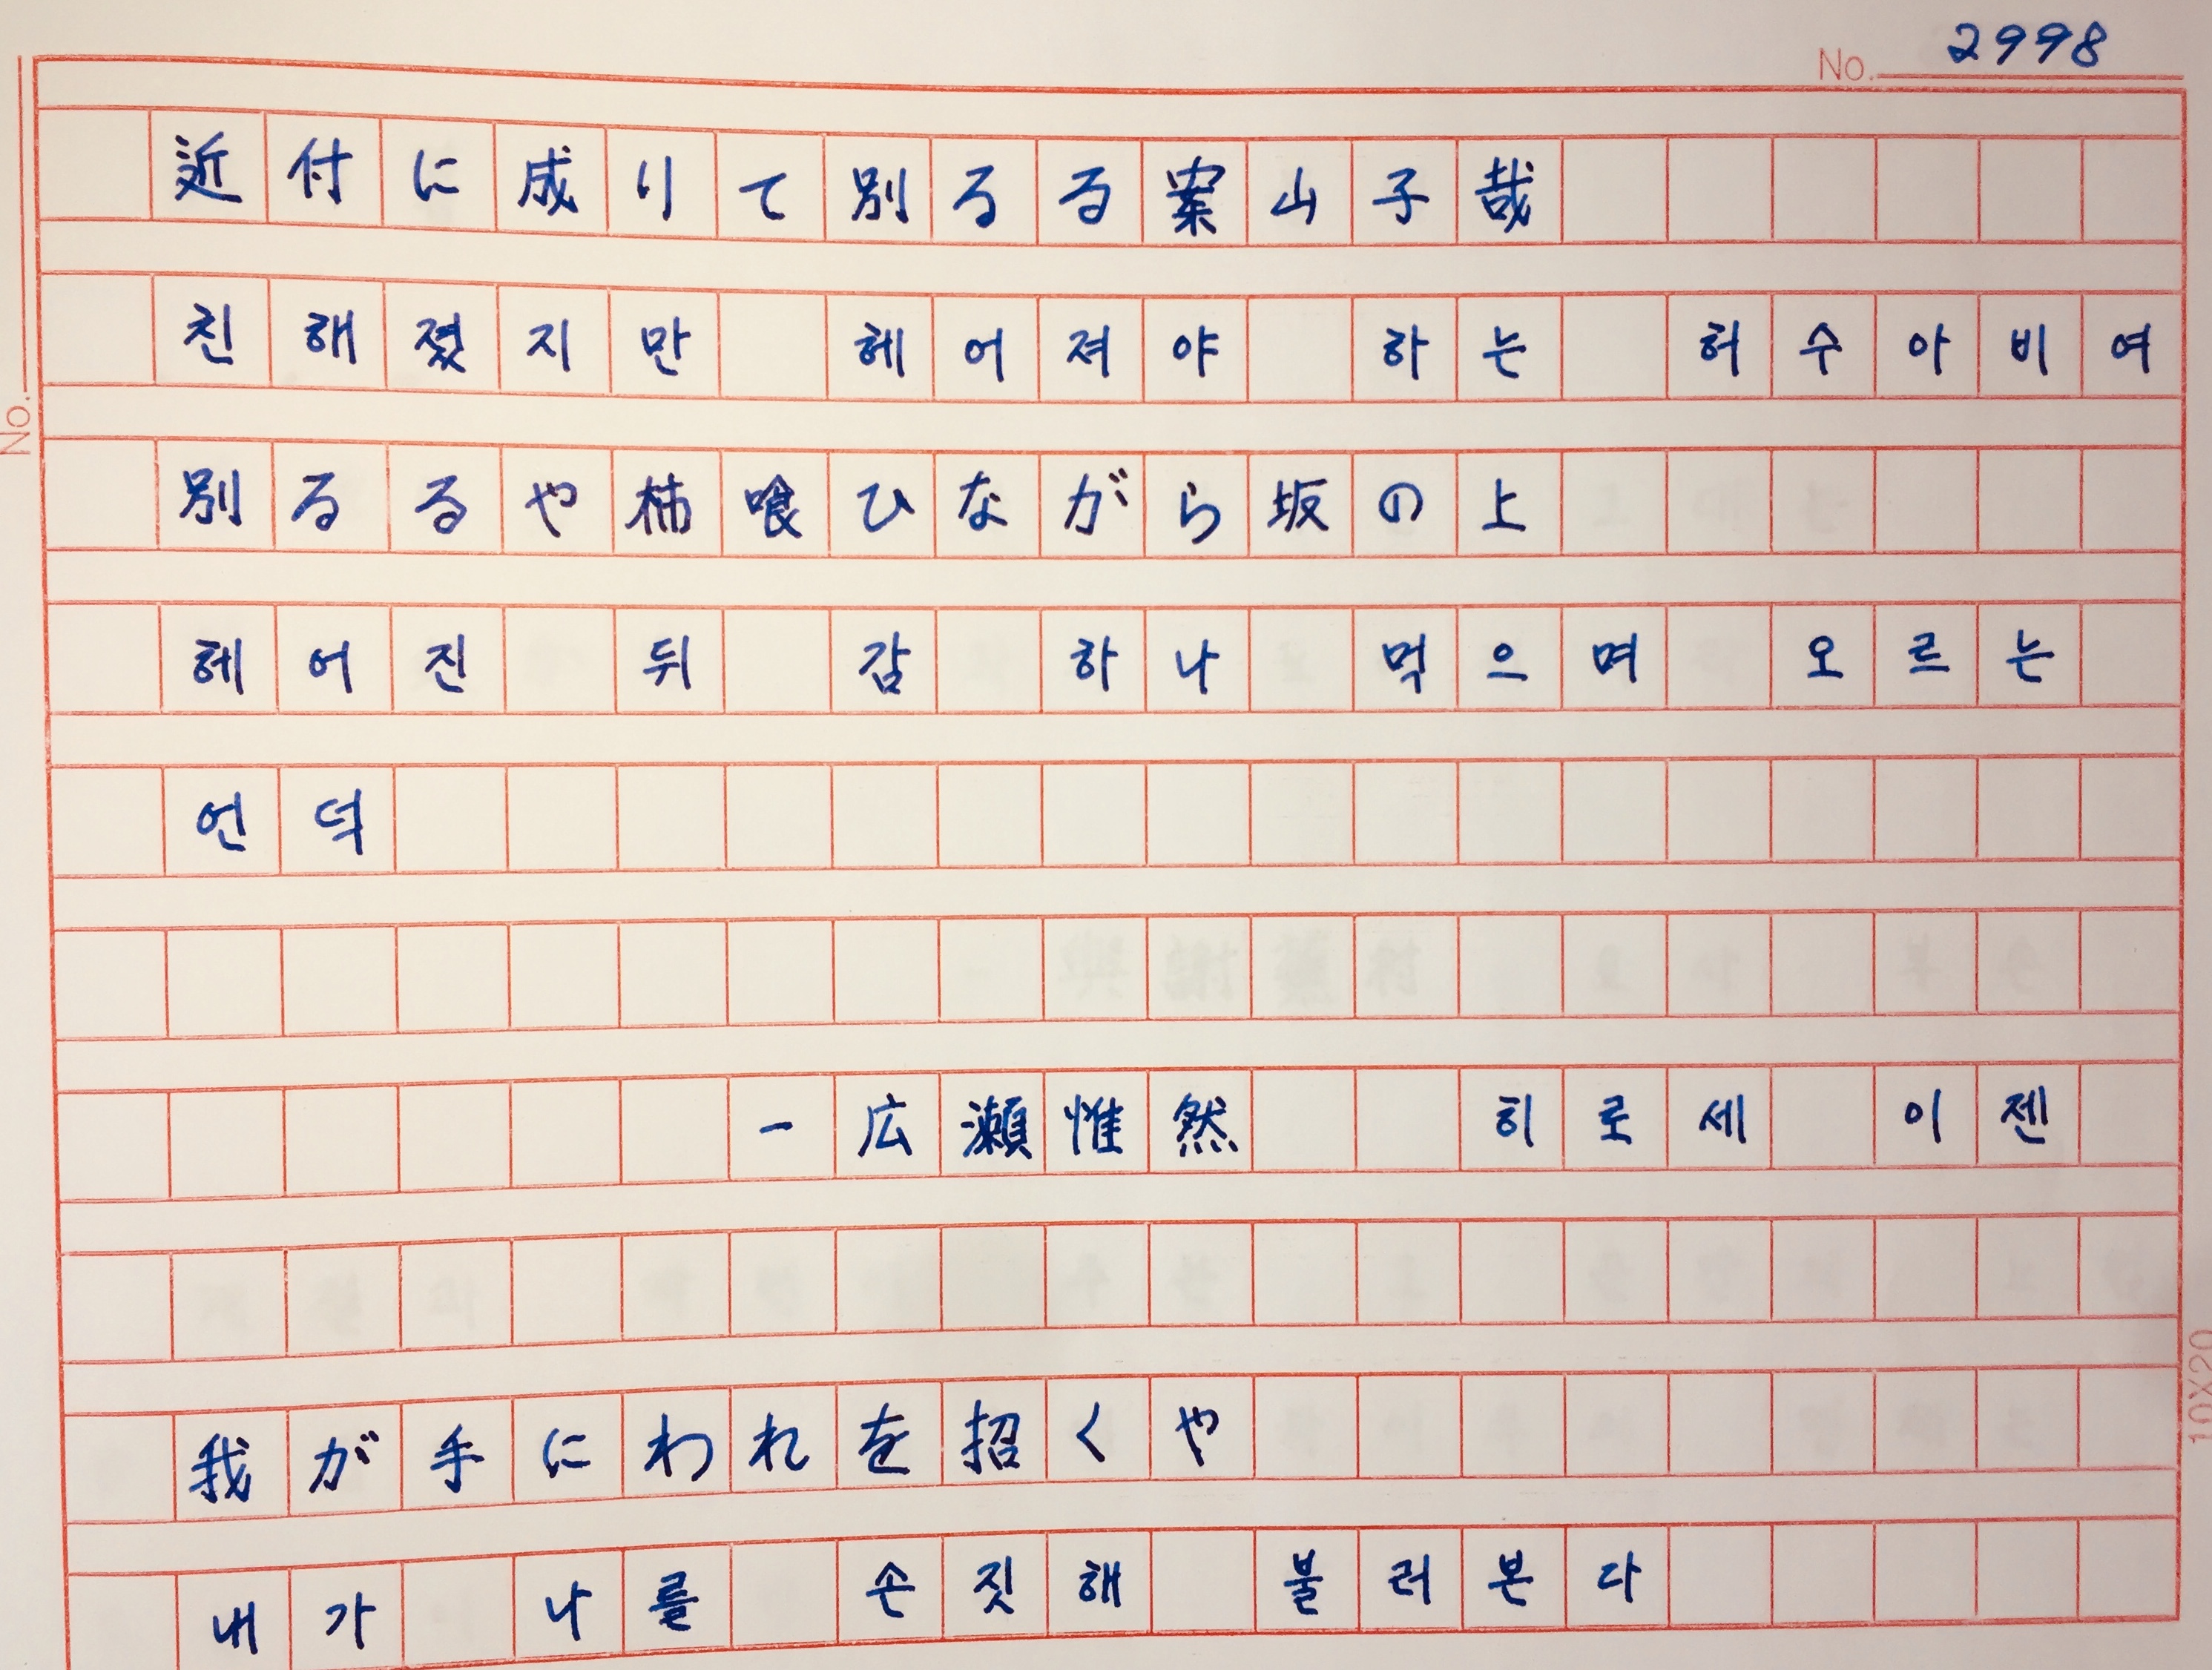 No. 2998
近付に成りて別るる案山子哉
친해졌지만 헤어져야 하는 허수아비여
No.
別るるや柿喰ひながら坂の上
헤어진 뒤 감 하나 먹으며 오르는
언덕
- 広瀬惟然 히로세 이젠
10X20
我が手にわれを招くや
내가 나를 손짓해 불러본다